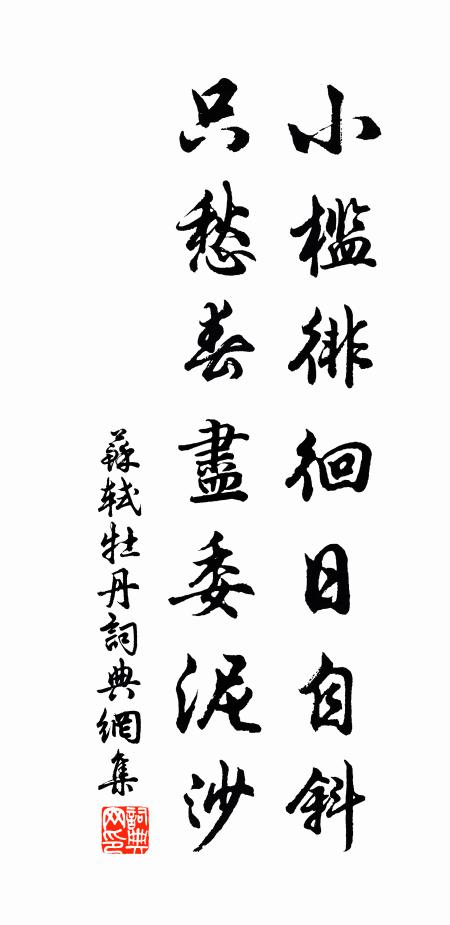 小檻徘徊日自斜
只愁春盡委泥沙
蘇軾牡丹詞典網集
詞典網印